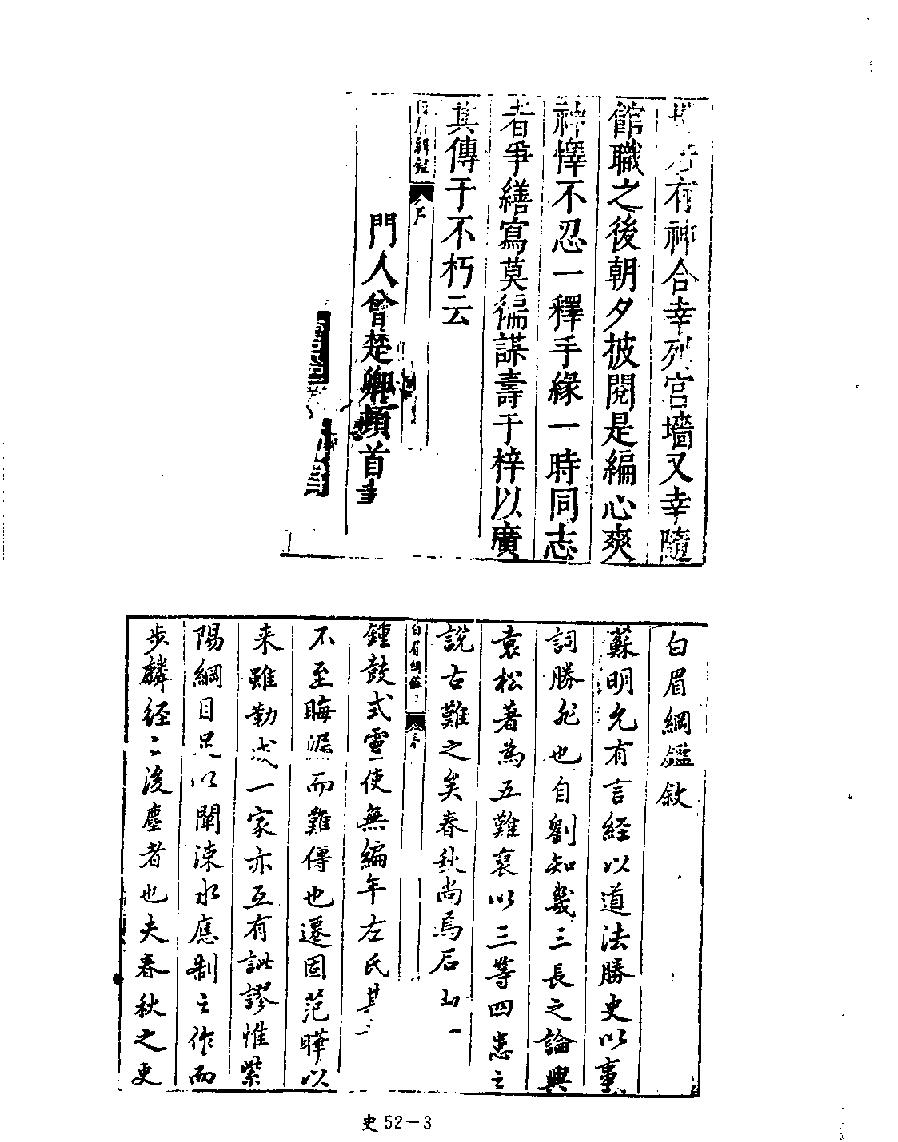 有神合幸列宫墻又幸隨
館職之後朝夕披閱是編心爽
神懌不忍一釋手緣一時同志
者爭繕寫莫徧謀壽于梓以廣
其傳于不朽云
門人曾楚卿頓首
白眉綱鑑敘
蘇明允有言経以道法勝史以事
詞勝也自劉知幾三長之論興
袁松著為五難裒以三等四患之
說古難之矣春秋尚焉石
鍾鼓式靈使無編年左氏其
不至晦泯而難傳也遷固范曄以
来雖勒成一家亦互有訛謬惟紫
陽綱目足以闡涑水應制之作而
步麟経之後塵者也夫春秋之史
史 52－3